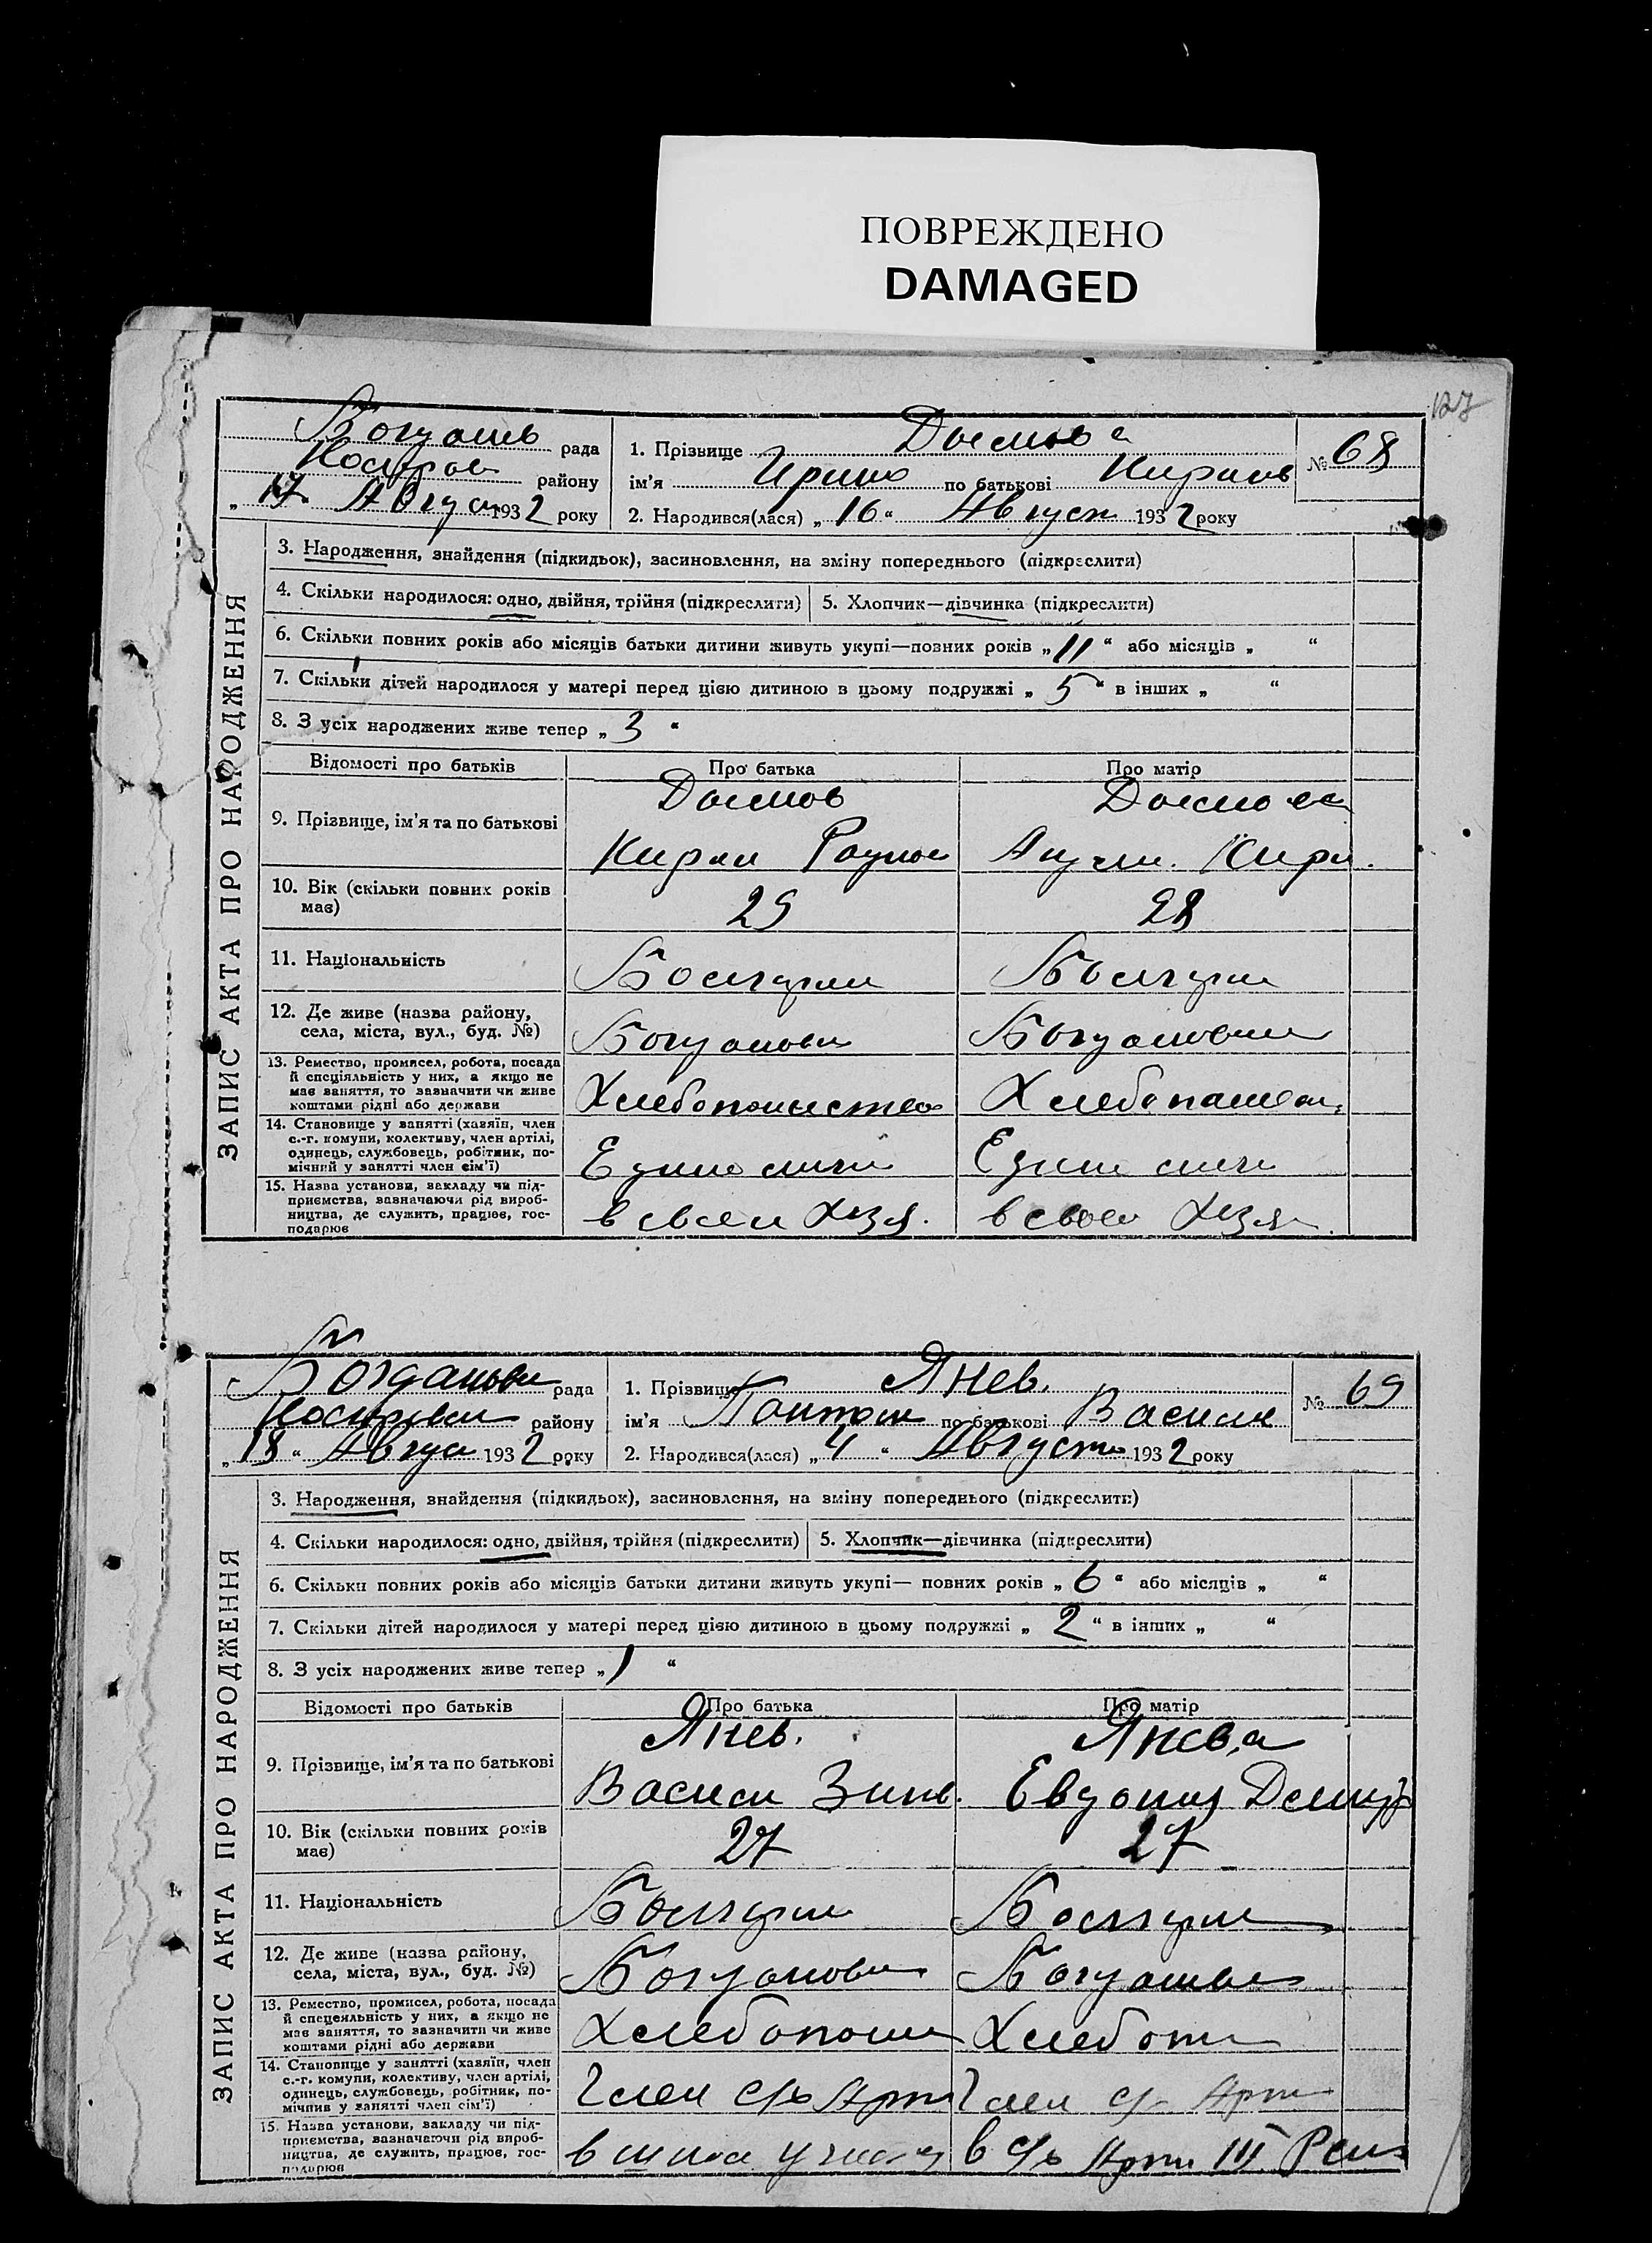 ПОВРЕЖДЕНО
DAMAGED
127
рада
району
„17 Август 1932 року
1. Прізвище
ім'я Ирина по батькові Кирилов
№ 68
2. Народився(лася) „16“ Август 1932 року
ЗАПИС АКТА ПРО НАРОДЖЕННЯ
3. Народження, знайдення (підкидьок), засиновлення, на зміну попереднього (підкреслити)
4. Скільки народилося: одно, двійня, трійня (підкреслити)
5. Хлопчик—дівчинка (підкреслити)
6. Скільки повних років або місяців батьки дитини живуть укупі—повних років „11“ або місяців „ “
7. Скільки дітей народилося у матері перед цією дитиною в цьому подружжі „5“ в інших „ “
8. З усіх народжених живе тепер „3“
Відомості про батьків
Про батька
Про матір
9. Прізвище, ім'я та по батькові
10. Вік (скільки повних років
має)
29
28
11. Національність
Болгарин
Болгарин
12. Де живе (назва району,
села, міста, вул., буд. №)
Богдановк
Богдановки
13. Ремество, промисел, робота, посада
й спеціяльність у них, а якщо не
має заняття, то зазначити чи живе
коштами рідні або держави
Хлебопашество
Хлебопашес
14. Становище у занятті (хазяїн, член
с.-г. комуни, колективу, член артілі,
одинець, службовець, робітник, по-
мічний у занятті член сім'ї)
Единолични
Единолични
15. Назва установи, закладу чи під-
приємства, зазначаючи рід вироб-
ництва, де служить, працює, гос-
подарює
в своем хзя.
в своем хзя.
Богдановк рада
району
„18“ Август 1932 року
1. Прізвище Янев.
ім'я по батькові Василь
№ 69
2. Народився(лася) „4“ Август 1932 року
ЗАПИС АКТА ПРО НАРОДЖЕННЯ
3. Народження, знайдення (підкидьок), засиновлення, на зміну попереднього (підкреслити)
4. Скільки народилося: одно, двійня, трійня (підкреслити)
5. Хлопчик—дівчинка (підкреслити)
6. Скільки повних років або місяців батьки дитини живуть укупі— повних років „6“ або місяців „ “
7. Скільки дітей народилося у матері перед цією дитиною в цьому подружжі „2“ в інших „ “
8. З усіх народжених живе тепер „1“
Відомості про батьків
Про батька
Про матір
9. Прізвище, ім'я та по батькові
Янев.
Янева
Васили Зинов.
Евдокия Демид
10. Вік (скільки повних років
має)
27
27
11. Національність
Болгарин
Болгарин
12. Де живе (назва району,
села, міста, вул., буд. №)
Богдановк
Богдановк
13. Ремество, промисел, робота, посада
й спецеяльність у них, а якщо не
має заняття, то зазначити чи живе
коштами рідні або держави
Хлебопаши
Хлебопа
14. Становище у занятті (хазяїн, член
с.-г. комуни, колективу, член артілі,
одинець, службовець, робітник, по-
мічнив у занятті член сім'ї)
Член с/х Арт
Член с/х Арт
15. Назва установи, закладу чи під-
приємства, вазначаючи рід вироб-
ництва, де служить, працює, гос-
подарює
в с/х Арти III Реш